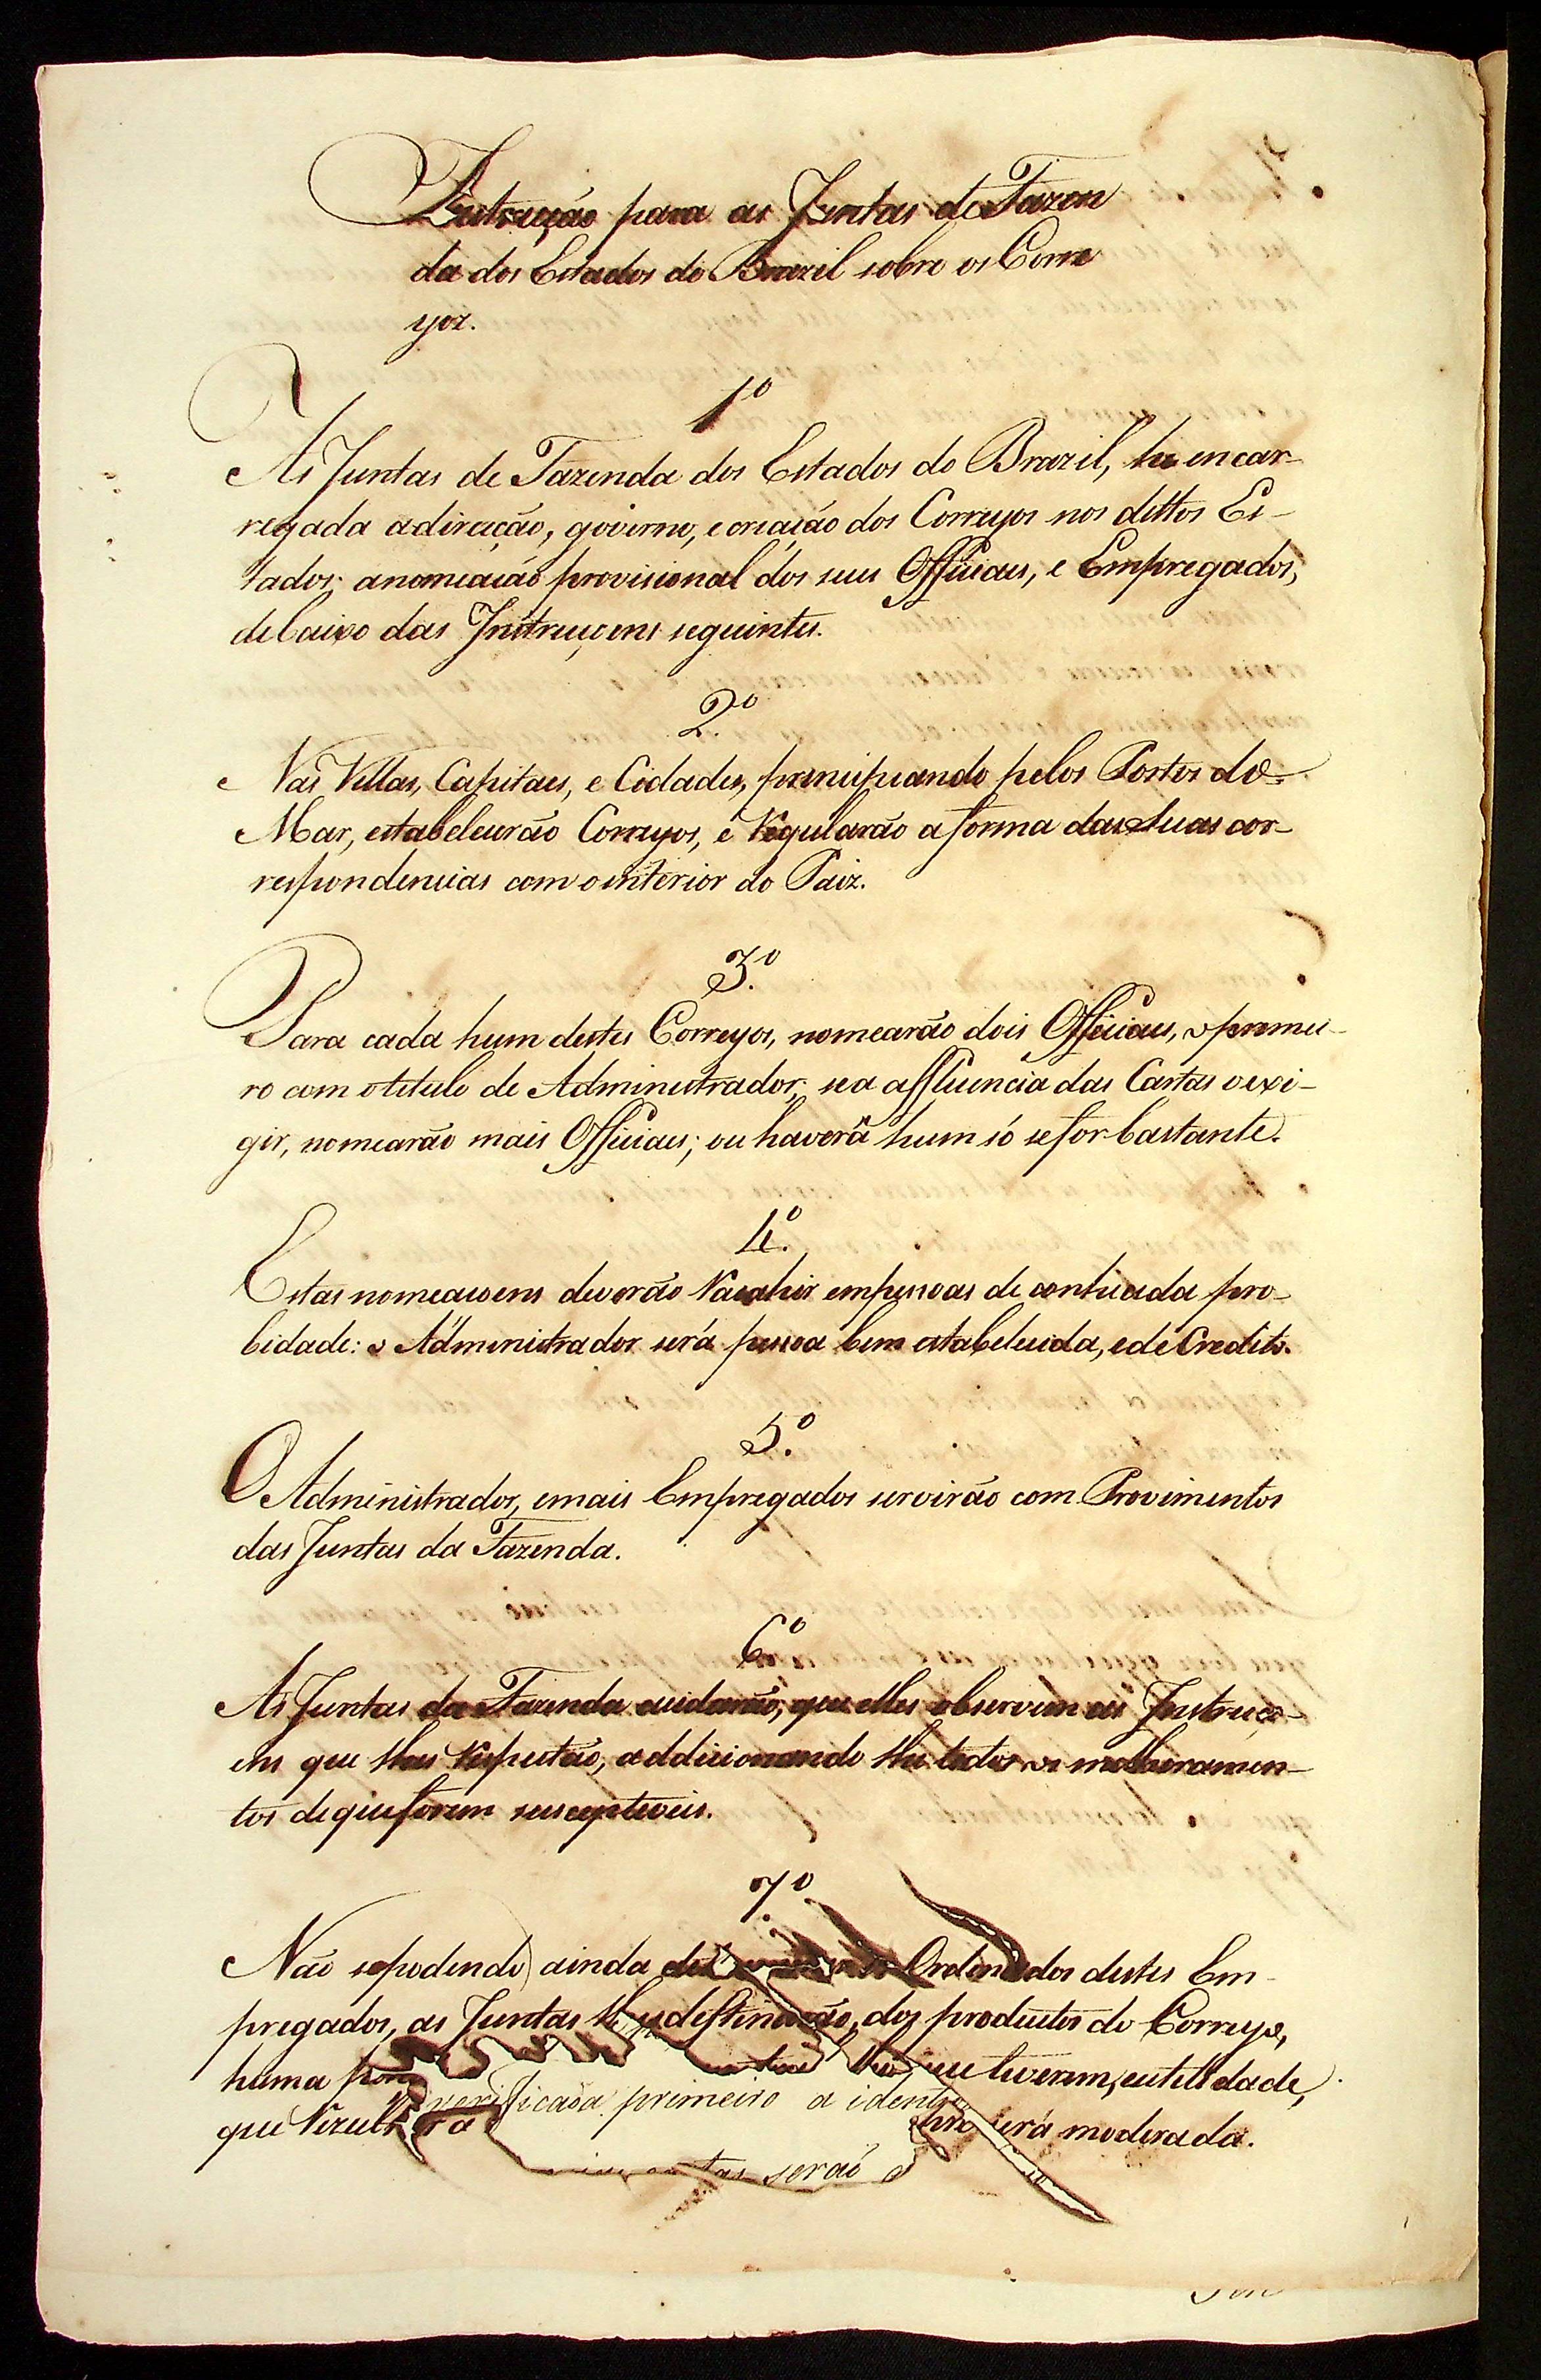 Instrução para as Juntas de Fazen
da dos Estados do Brazil sobre os Corre
yoz.
1º
As Juntas de Fazenda dos Estados do Brazil, he encar-
regada a direcção, governo, e creação dos Correyos nos dittos Es-
tados; a nomeação provisional dos seus Officiaes, e Empregados,
debaixo das Instrucçoens seguintes.
2.º
Nas Villas, Capitaes, e Cidades, principiando pelos Portos do
Mar, estabelecerão Correyos, e Regularão a forma das suas cor-
respondencias com o interior do Paiz.
3.º
Para cada hum destes Correyos, nomearão dois Officiaes, o primei-
ro com o titulo de Administrador; se a affluencia das Cartas o exi-
gir, nomearão mais Officiaes; ou haverá hum só se for bastante.
4.º
Estas nomeaçoens deverão Racahir em pessoas de conhecida pro-
bidade: o Administrador será pessoa bem estabelecida, e de Credito.
5.º
O Administrador, e mais Empregados servirão com Provimentos
das Juntas da Fazenda.
6º
As Juntas da Fazenda cuidarão, que elles observem as Instruço-
ens que lhes Respeitão, addicionando lhe todos os melhoramen-
tos de que forem susceptiveis.
7.º
Não se podendo ainda Ordenados destes Em-
pregados, as Juntas lhes destinarão, dos productos do Correyo,
huma que tiverem, e utilidade,
verificada primeiro a
que será moderada.
serão